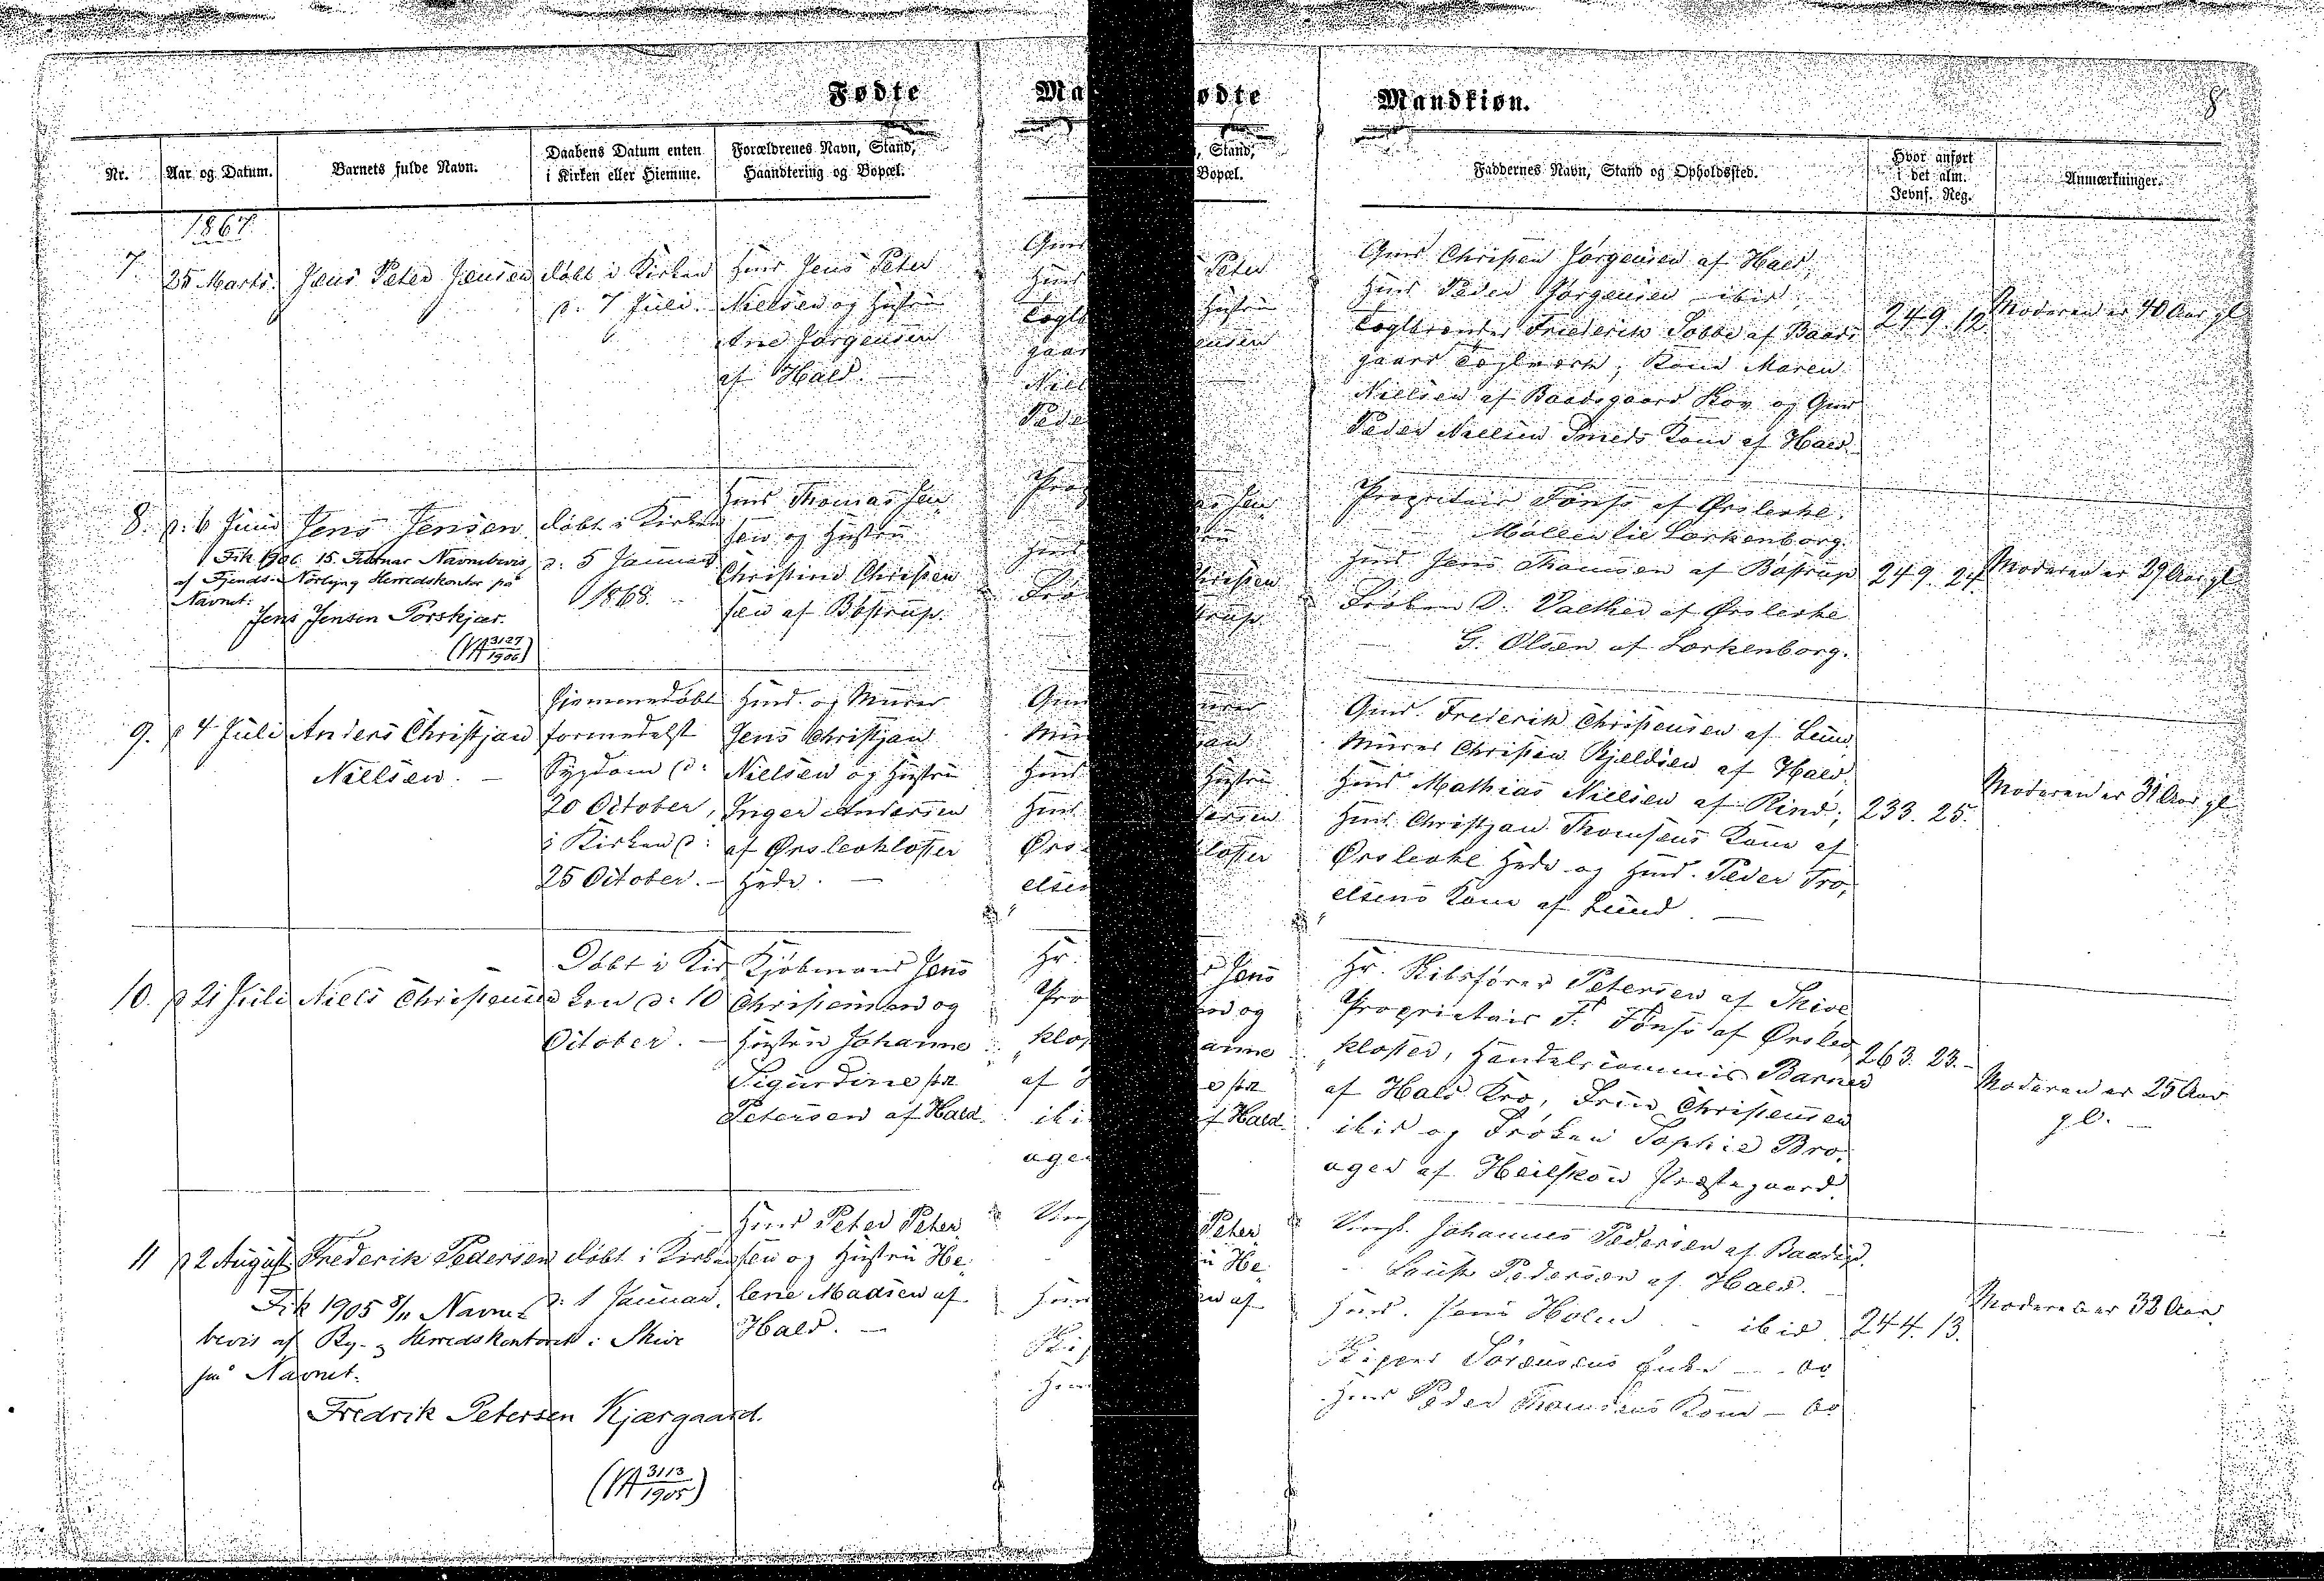 Fødte
Mandkiøn.
8
Nr.
Aar og Datum.
Barnets fulde Navn.
Daabens Datum enten
i Kirken eller Hiemme.
Forældrenes Navn, Stand,
Haandtering og Bopæl.
Faddernes Navn, Stand og Opholdssted.
Hvor anført
i det alm.
Jevnf. Reg.
Anmærkninger.
1867
7.
25 Marts.
Jens Peter Jensen
døbt i Kirken
d. 7 Juli.
Huusmd Jens Peter
Nielsen og Hustru
Ane Jørgensen
af Hald.
Gmd Christen Jørgensen af Hald,
Huusmd Peder Jørgensen ibid,
Teglbrænder Friederik Sobbe af Baads
gaard Teglværk, Kone Maren
Nielsen af Baadsgaard Skov og Gmd
Peder Nielsen Smeds Kone af Hald.
249. 12
Moderen er 40 Aar gl
8.
d. 6 Juni
Jens Jensen
Fik 1906 15. Februar Navnebevis
af Fjends-Nørlyng Herredskontor på
Navnet:
Jens Jensen Porskjær.
(VA 3127
1906)
døbt i Kirken
d. 5 Januar
1868.
Huusmd Thomas Jen
sen og Hustru
Christine Christen
sen af Bøstrup.
Proprietair Fønss af Ørslevkl.
Møller til Lærkenborg.
Huusmd Jens Thomsen af Bøstrup
Frøken D. Valther af Ørslevkl
G. Olsen af Lærkenborg.
249. 24
Moderen er 29 Aar gl
9.
d 4 Juli
Anders Christjan
Nielsen.
hjemmedøbt
formedelst
Sygdom d:
20 October,
i Kirken d:
25 October.
Huusmd. og Murer
Jens Christjan
Nielsen og Hustru
Inger Andersen
af Ørslevkloster
Hede.
Gmd. Frederik Christensen af Lund,
Murer Christen Kjeldsen af Hald,
Huusmd Mathias Nielsen af Rind,
Huusmd Christjan Thomsens Kone af
Ørslevkl Hede og Huusmd. Peder Tro,
elsens Kone af Lund.
233. 25.
Moderen er 31 Aar gl
10.
d 21 Juli
Niels Christensen
Døbt i Kir
ken d: 10
October.
Kjøbmand Jens
Christensen og
Hustru Johanne
Sigurdine f.
Petersen af Hald.
Hr. Skibsfører Petersen af Skive
Proprietair F. Fønss af Ørslev
kloster, Handelscommis Barner
af Hald Kro, Fru Christensen
ibid og Frøken Sophie Bro,
ager af Heilskov Præstegaard.
263. 23.
Moderen er 25 Aar
gl.
11
d 2 August
Frederik Pedersen
Fik 1905 8/11 Navne
bevis af By- og Herredskontoret i Skive
på Navnet.
Fredrik Petersen Kjærgaard.
(VA 3113
1905)
døbt i Kirken
d: 1 Januar.
Huusmd Peter Peter
sen og Hustru He,
lene Madsen af
Hald.
Ungk. Johannes Pedersen af Baadsgd.
Laust Pedersen af Hald.
Huusmd. Jens Holm ibid
Skipper Sørensens Enke - do
Huusmd Peder Thomsens Kone - do
244. 13.
Moderen er 32 Aar